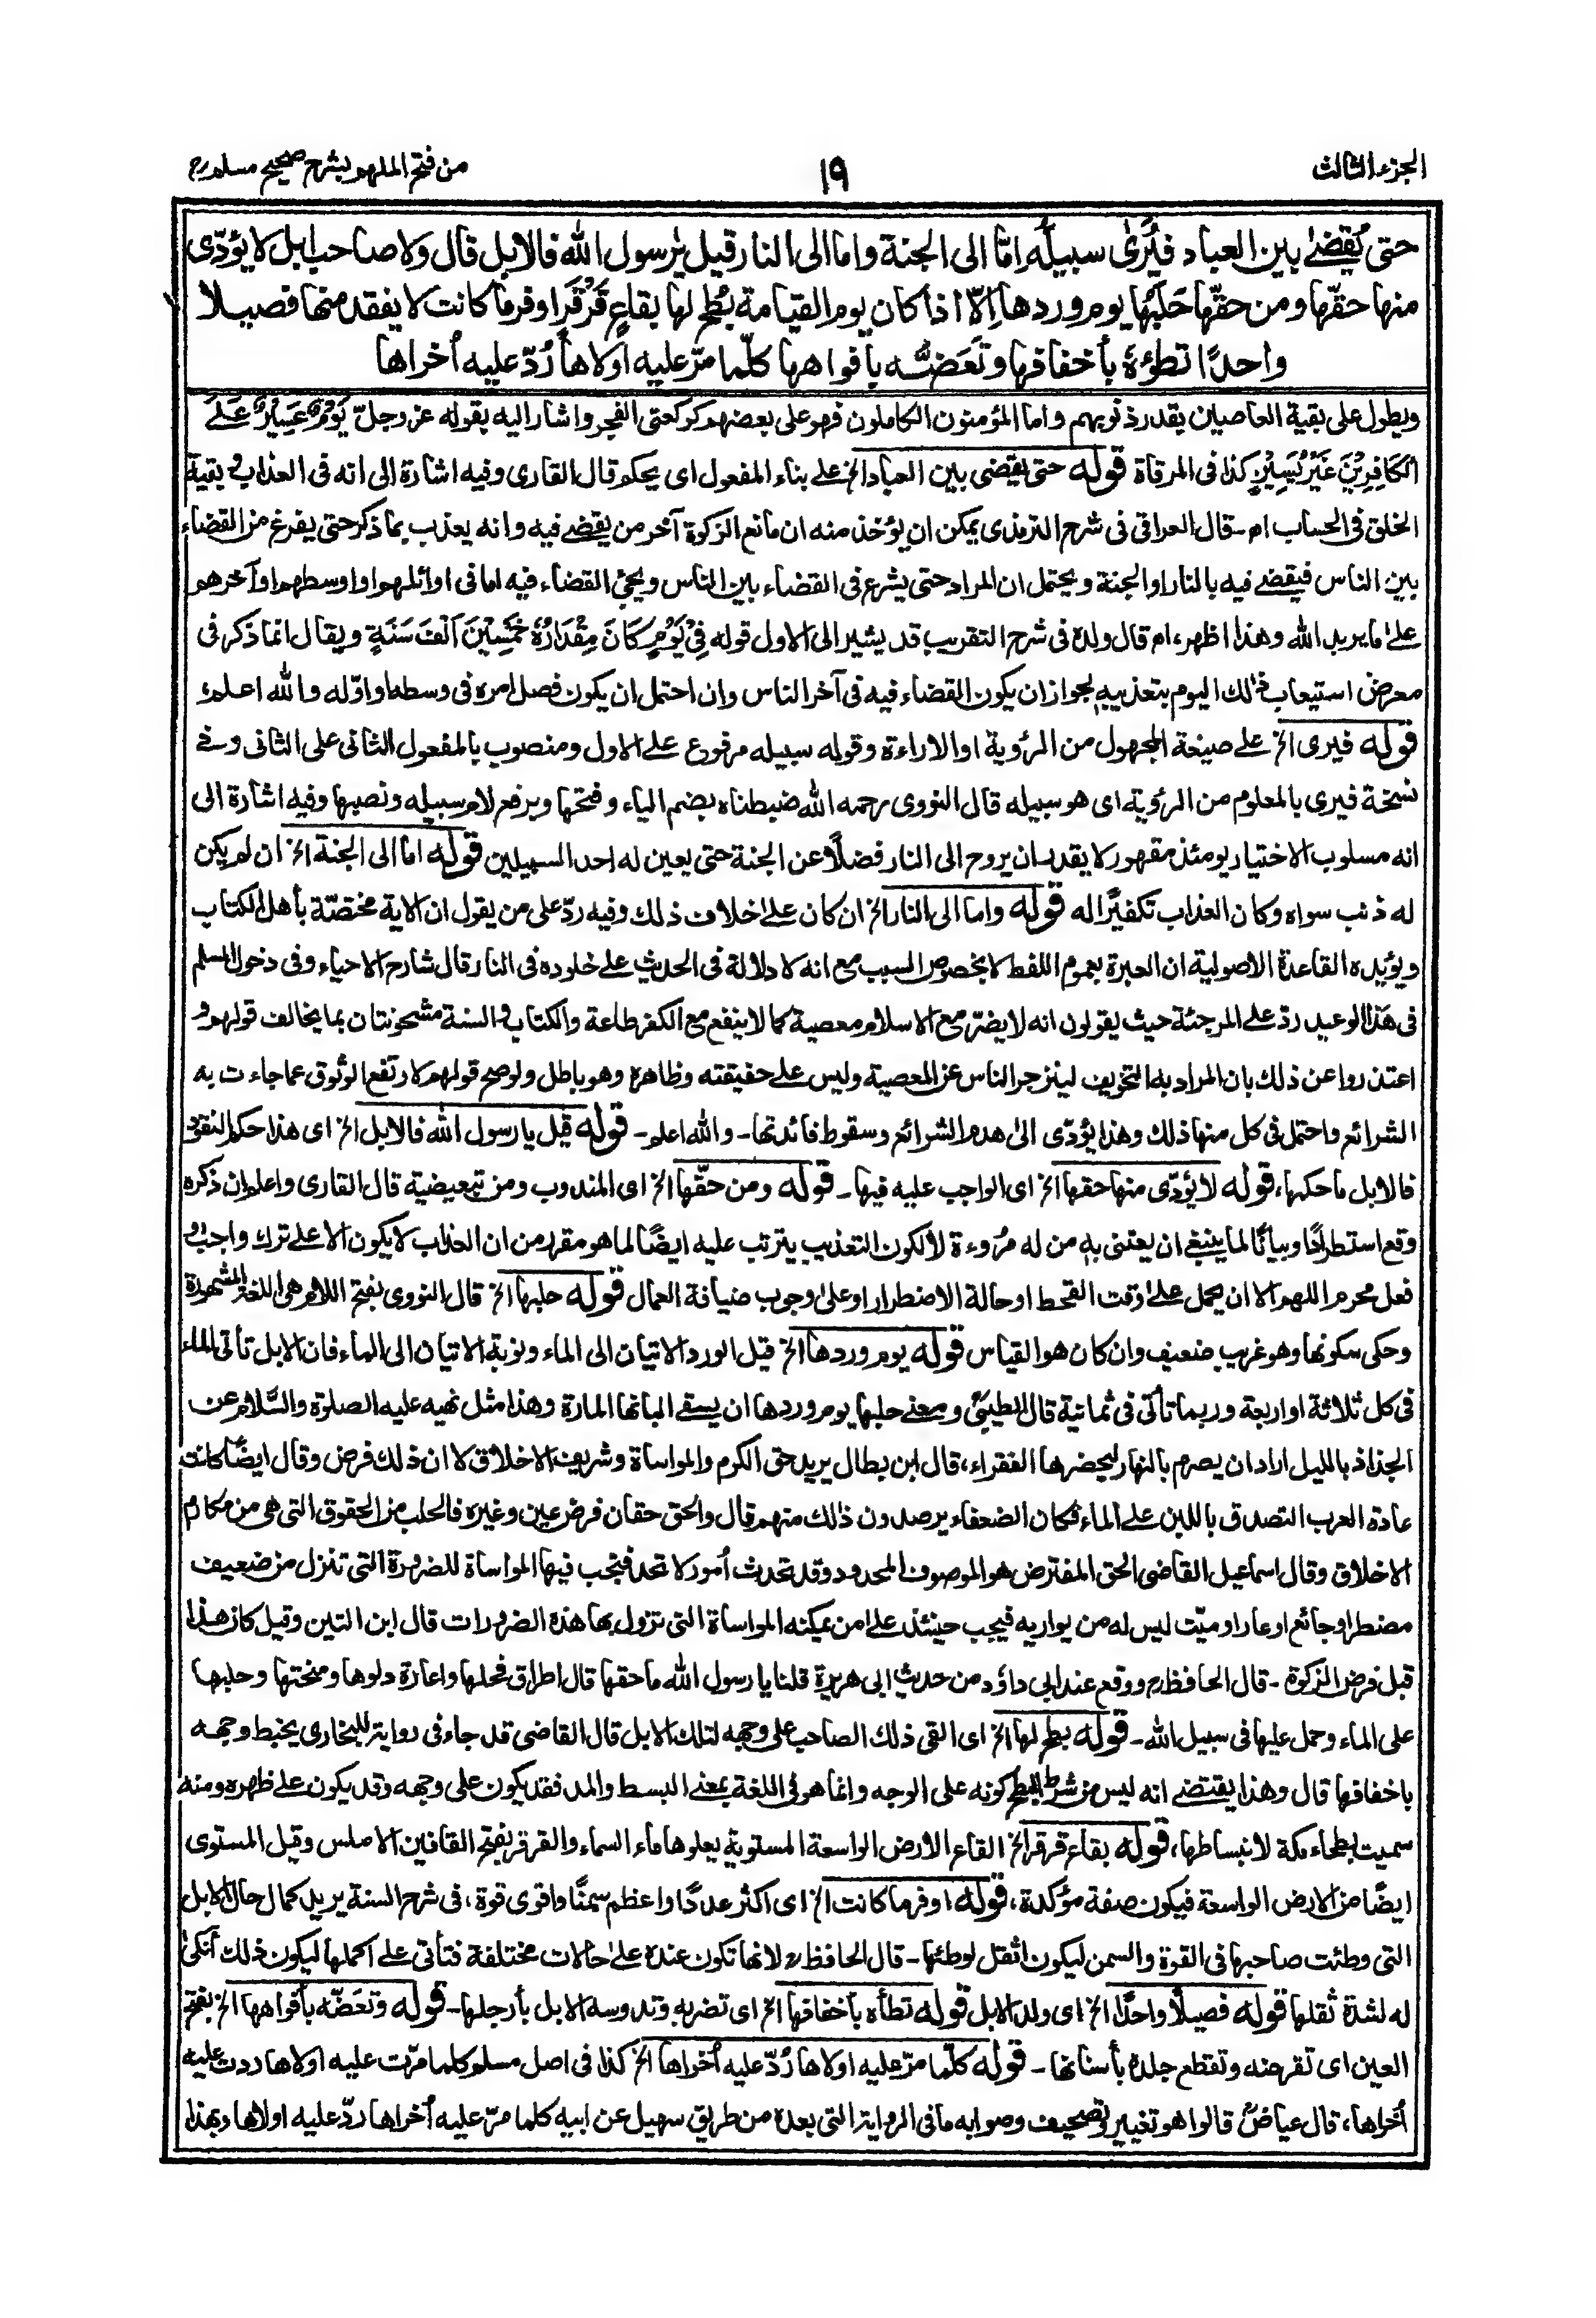 الجزء الثالث
١٩
من فتح الملهم بشرح صحيح مسلم رح
حتى يُقضٰى بين العباد فيُرىٰ سبيلُه اِمّا الى الجنة واما الى النار قيل يٰرسول الله فالابل قال ولا صاحب ابل لا يؤدّى
منها حقّها ومن حقّها حَلَبُها يوم وردها اِلّا اذا كان يوم القيامة بُطح لها بقاعٍ قَرْقَرٍ اوفرما كانت لا يفقد منها فصيلا
واحدًا تطؤهٗ بأخفافها وتَعَضُّه بأفواهها كلّما مرّ عليه اولاها رُدّ عليه اُخراها
ويطول على بقية العاصين بقدر ذنوبهم واما المؤمنون الكاملون فهو على بعضهم كركعتى الفجر واشار اليه بقوله عز وجلّ يَوْمٌ عَسِيْرٌ عَلَى
الْكَافِرِيْنَ غَيْرُ يَسِيْرٍ كذا فى المرقاة قوله حتى يقضى بين العباد الخ على بناء المفعول اى يحكم قال القارى وفيه اشارة الى انه فى العذاب وبقية
الخلق فى الحساب اه - قال العراقى فى شرح الترمذى يمكن ان يؤخذ منه ان مانع الزكوة آخر من يقضى فيه وانه يعذب بما ذكر حتى يفرغ من القضاء
بين الناس فيقضى فيه بالنار او الجنة ويحتمل ان المراد حتى يشرع فى القضاء بين الناس ويجئ القضاء فيه اما فى اوائلهم او اوسطهم او آخرهم
علىٰ ما يريد الله وهذا اظهر، اه قال ولده فى شرح التقريب قد يشير الى الاول قوله فِىْ يَوْمٍ كَانَ مِقْدَارُهٗ خَمْسِيْنَ اَلْفَ سَنَةٍ ويقال انما ذكر فى
معرض استيعاب ذلك اليوم بتعذيبه لجواز ان يكون القضاء فيه فى آخر الناس وان احتمل ان يكون فصل امره فى وسطه او اوّله والله اعلم،
قوله فيرى الخ على صيغة المجهول من الرؤية او الاراءة وقوله سبيله مرفوع على الاول ومنصوب بالمفعول الثانى على الثانى وفى
نسخة فيرى بالمعلوم من الرؤية اى هو سبيله قال النووى رحمه الله ضبطناه بضم الياء وفتحها وبرفع لام سبيله ونصبها وفيه اشارة الى
انه مسلوب الاختيار يومئذ مقهور لا يقدر ان يروح الى النار فضلًا عن الجنة حتى يعين له احد السبيلين قوله اما الى الجنة الخ ان لم يكن
له ذنب سواه وكان العذاب تكفيرًا له قوله واما الى النار الخ ان كان علىٰ خلاف ذلك وفيه ردّ على من يقول ان الاية مختصّة بأهل الكتاب
ويؤيده القاعدة الاصولية ان العبرة بعموم اللفظ لا بخصوص السبب مع انه لا دلالة فى الحديث على خلوده فى النار قال شارح الاحياء وفى دخول المسلم
فى هذا الوعيد ردّ على المرجئة حيث يقولون انه لا يضرّ مع الاسلام معصية كما لا ينفع مع الكفر طاعة والكتاب والسنة مشحونتان بما يخالف قولهم و
اعتذروا عن ذلك بان المراد به التخويف لينزجر الناس عن المعصية وليس على حقيقته وظاهره وهو باطل ولو صح قولهم لارتفع الوثوق عما جاءت به
الشرائع واحتمل فى كل منها ذلك وهذا يؤدّى الىٰ هدم الشرائع وسقوط فائدتها - والله اعلم - قوله قيل يا رسول الله فالابل الخ اى هذا حكم النقود
فالابل ما حكمها، قوله لا يؤدّى منها حقها الخ اى الواجب عليه فيها - قوله ومن حقّها الخ اى المندوب ومن تبعيضية قال القارى واعلم ان ذكره
وقع استطرادًا وبيانًا لما ينبغى ان يعتنى به من له مُروءة لا لكون التعذيب يترتب عليه ايضًا لما هو مقرر من ان العذاب لا يكون الا على ترك واجب او
فعل محرم اللهم الا ان يحمل علىٰ وقت القحط او حالة الاضطرار او علىٰ وجوب ضيافة العمال قوله حلبها الخ قال النووى بفتح اللام هى اللغة المشهورة
وحكى سكونها وهو غريب ضعيف وان كان هو القياس قوله يوم وردها الخ قيل الورد الاتيان الى الماء ونوبة الاتيان الى الماء فان الابل تأتى الماء
فى كل ثلاثة او اربعة وربما تأتى فى ثمانية قال الطيبىؒ ومعنى حلبها يوم وردها ان يسقى البانها المارة وهذا مثل نهيه عليه الصلوة والسّلام عن
الجذاذ بالليل اراد ان يصرم بالنهار ليحضرها الفقراء، قال ابن بطال يريد حق الكرم والمواساة وشريف الاخلاق لا ان ذلك فرض وقال ايضًا كانت
عادة العرب التصدق باللبن على الماء فكان الضعفاء يرصدون ذلك منهم قال والحق حقان فرض عين وغيره فالحلب من الحقوق التى هى من مكارم
الاخلاق وقال اسماعيل القاضى الحق المفترض هو الموصوف المحدود وقد تحدث اُمور لا تحد فتجب فيها المواساة للضرورة التى تنزل من ضعيف
مضطر او جائع او عار او ميّت ليس له من يواريه فيجب حينئذ علىٰ من يمكنه المواساة التى تزول بها هذه الضرورات قال ابن التين وقيل كان هذا
قبل فرض الزكوة - قال الحافظ رح ووقع عند ابى داؤد من حديث ابى هريرة قلنا يا رسول الله ما حقها قال اطراق فحلها واعارة دلوها ومنحتها وحلبها
على الماء وحمل عليها فى سبيل الله - قوله بطح لها الخ اى القى ذلك الصاحب على وجهه لتلك الابل قال القاضى قد جاء فى رواية للبخارى يخبط وجهه
باخفافها قال وهذا يقتضى انه ليس من شرط البطح كونه على الوجه وانما هو فى اللغة بمعنى البسط والمد فقد يكون على وجهه وقد يكون على ظهره ومنه
سميت بطحاء مكة لانبساطها، قوله بقاع قرقر الخ القاع الارض الواسعة المستوية يعلوها ماء السماء والقرقر بفتح القافين الاملس وقيل المستوى
ايضًا من الارض الواسعة فيكون صفة مؤكدة، قوله اوفرما كانت الخ اى اكثر عددًا واعظم سمنًا واقوى قوة، فى شرح السنة يريد كمال حال الابل
التى وطئت صاحبها فى القوة والسمن ليكون اثقل لوطئها - قال الحافظ رح لانها تكون عنده علىٰ حالات مختلفة فتأتى على اكملها ليكون ذلك أنكىٰ
له لشدة ثقلها قوله فصيلًا واحدًا الخ اى ولد الابل قوله تطأه بأخفافها الخ اى تضربه وتدوسه الابل بأرجلها - قوله وتعَضّه بأفواهها الخ بفتح
العين اى تقرضه وتقطع جلده بأسنانها - قوله كلّما مرّ عليه اولاها رُدّ عليه اُخراها الخ كذا فى اصل مسلم كلما مرّت عليه اولاها ردت عليه
اُخراها، قال عياضؒ قالوا هو تغيير وتصحيف وصوابه ما فى الرواية التى بعده من طريق سهيل عن ابيه كلما مرّ عليه اُخراها ردّ عليه اولاها، وبهذا